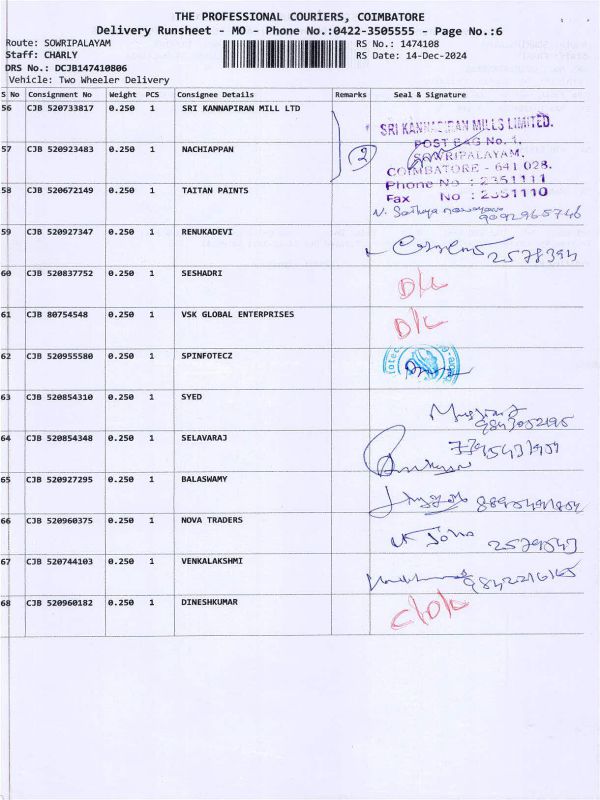 THE PROFESSIONAL COURIERS, COIMBATORE
Delivery Runsheet - MO - Phone No.:0422-3505555 - Page No.:6
Route: SOWRIPALAYAM RS No.: 1474108
Staff: CHARLY RS Date: 14-Dec-2024
DRS No.: DCJB147410806
Vehicle: Two Wheeler Delivery
S No Consignment No Weight PCS Consignee Details Remarks Seal & Signature
56 CJB 520733817 0.250 1 SRI KANNAPIRAN MILL LTD
SRI KANNAPIRAN MILLS LIMITED.
POST BAG No. 1,
57 CJB 520923483 0.250 1 NACHIAPPAN 2
SOWRIPALAYAM.
COIMBATORE - 641 028.
Phone No : 2351111
58 CJB 520672149 0.250 1 TAITAN PAINTS
Fax No : 2351110
9092965746
59 CJB 520927347 0.250 1 RENUKADEVI
60 CJB 520837752 0.250 1 SESHADRI D/L
61 CJB 80754548 0.250 1 VSK GLOBAL ENTERPRISES D/L
62 CJB 520955580 0.250 1 SPINFOTECZ
63 CJB 520854310 0.250 1 SYED
64 CJB 520854348 0.250 1 SELAVARAJ
65 CJB 520927295 0.250 1 BALASWAMY
66 CJB 520960375 0.250 1 NOVA TRADERS
67 CJB 520744103 0.250 1 VENKALAKSHMI
68 CJB 520960182 0.250 1 DINESHKUMAR